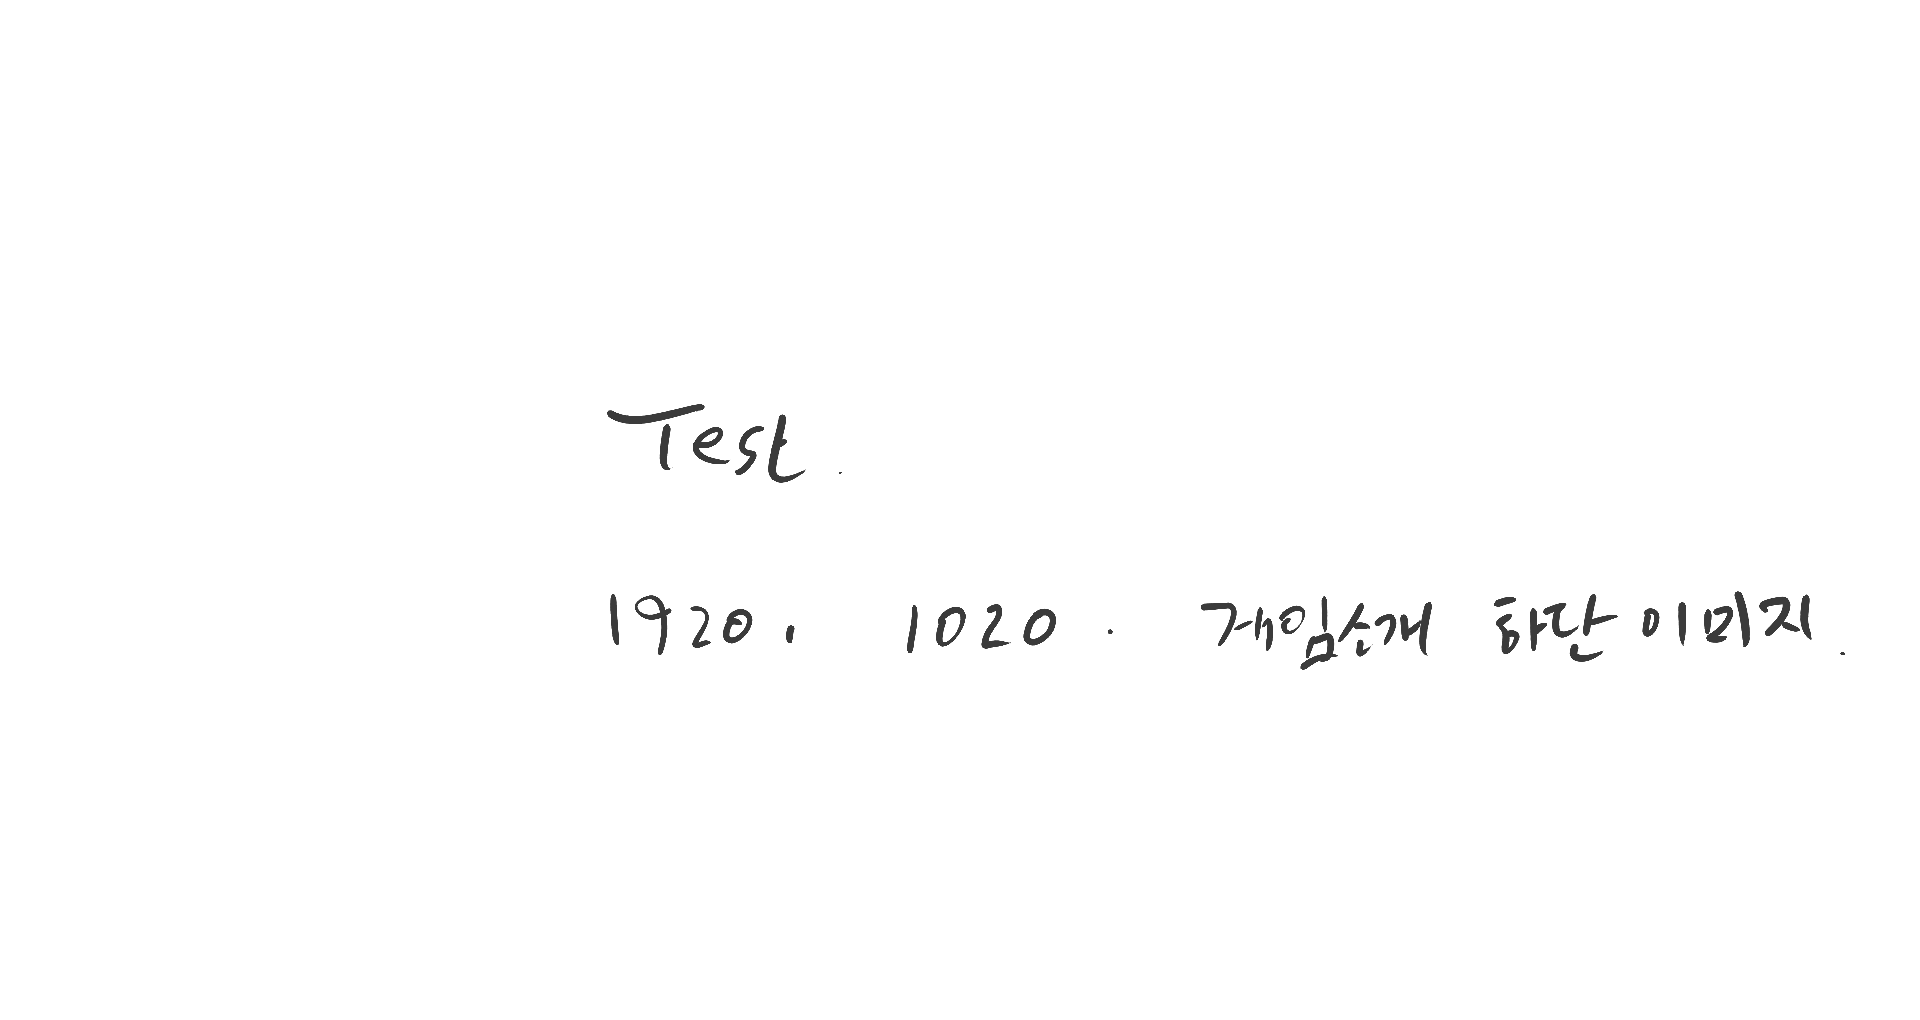 Test.
1920, 1020. 게임소개 하단 이미지.